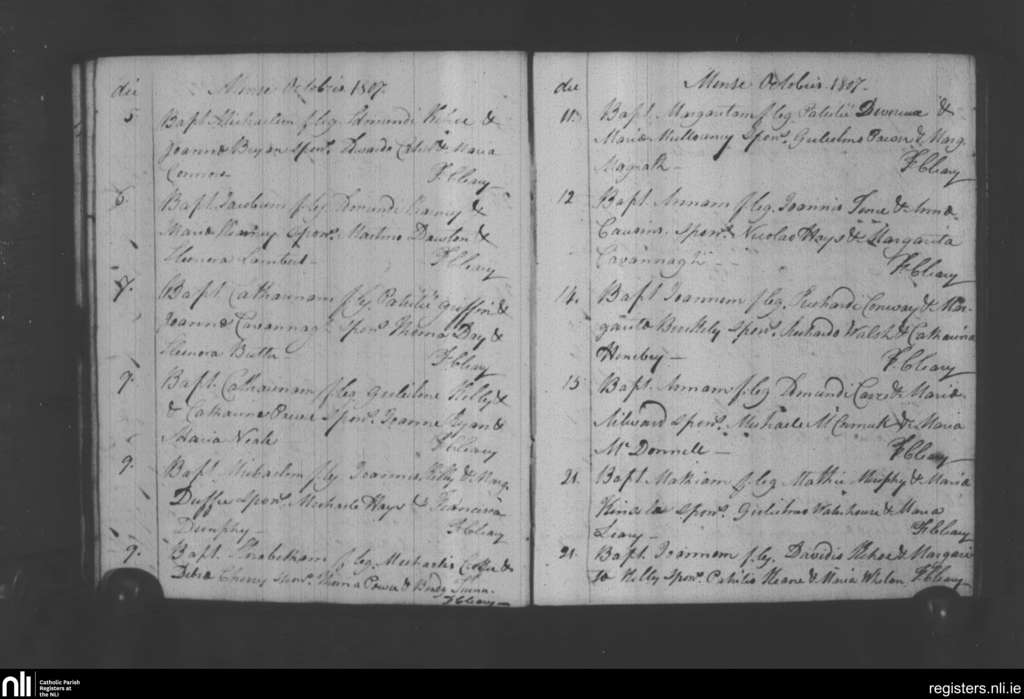 die Mense Octobris 1807.
5 Bapt. Michaelem f. leg. Edmundi &
Joanna Bryan Spons. Edvardo & Maria
Connors F Cleary
6. Bapt. Jacobum f. leg. Edmundi &
Maria Spons. Martino Dawson &
Eleonora Lambert F Cleary
7. Bapt. Catharinam f. leg. Patritii Griffin &
Joanna Cavannagh Spons. Thoma Day &
Eleonora Butler F Cleary
9. Bapt. Catharinam f. leg. Gulielmi Kelly &
& Catharina Power Spons. Joanne Ryan &
Maria Neale F Cleary
9. Bapt. Michaelem f. leg. Joannis Kelly & Marg.
Duffie Spons. Michaele Hays & Francisca
Dunphy F Cleary
9. Bapt. Elisabetham f. leg. Michaelis &
Debra Cheevy Spons. Thoma Power & Bridg.
F Cleary
die Mense Octobris 1807.
11. Bapt. Margaritam f. leg. Patritii Devereux &
Maria Mullowney Spons. Gulielmo Power & Marg.
Magrath F Cleary
12 Bapt. Annam f. leg. Joannis & Anna
Cousins. Spons. Nicolao Hays & Margarita
Cavannagh F Cleary
14. Bapt. Joannem f. leg. Richardi Conway & Mar-
garita Spons. Richardo Walsh & Catharina
Henebry F Cleary
15 Bapt. Annam f. leg. Edmundi & Maria
Milward Spons. Michaele McCormick & Maria
Mc Donnell F Cleary
21. Bapt. Mathiam f. leg. Mathie Murphy & Maria
Kinsla Spons. Gulielmo Waterhouse & Maria
Leary F Cleary
21. Bapt. Joannem f. leg. Davidis & Margari
ta Kelly Spons. Patritio Keane & Maria Whelan F Cleary
nli Catholic Parish
Registers at
the NLI
registers.nli.ie